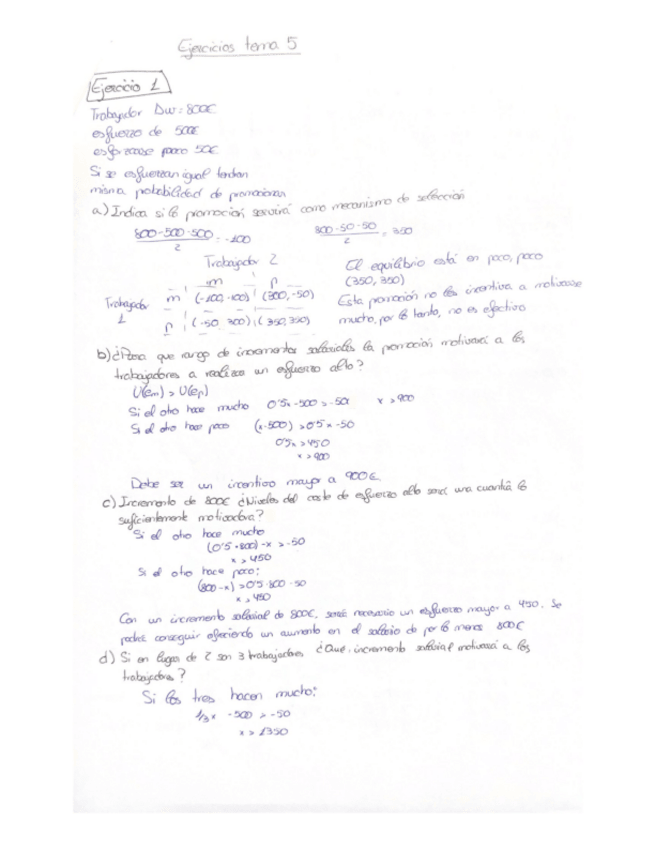 Ejercicios tema 5
Ejercicio 1
Trabajador Δw = 800€
esfuerzo de 500€
esforzarse poco 50€
Si se esfuerzan igual tendrán
misma probabilidad de promocionar
a) Indica si la promoción servirá como mecanismo de selección
800-500-500 / 2 = -100    800-50-50 / 2 = 350
Trabajador 2
m p
Trabajador 1
m (-100,-100) (300,-50)
p (-50, 300) (350,350)
El equilibrio está en poco, poco
(350, 350)
Esta promoción no les incentiva a motivarse
mucho, por lo tanto, no es efectivo
b) ¿Para que rango de incrementos salariales la promoción motivará a los
trabajadores a realizar un esfuerzo alto?
U(em) > U(ep)
Si el otro hace mucho 0'5x -500 > -50 x > 900
Si el otro hace poco (x-500) > 0'5x -50
0'5x > 450
x > 900
Debe ser un incentivo mayor a 900€.
c) Incremento de 800€ ¿Niveles del coste de esfuerzo alto será una cuantía lo
suficientemente motivadora?
Si el otro hace mucho
(0'5·800)-x > -50
x > 450
Si el otro hace poco:
(800-x) > 0'5·800-50
x > 450
Con un incremento salarial de 800€, será necesario un esfuerzo mayor a 450. Se
podrá conseguir ofreciendo un aumento en el salario de por lo menos 800€
d) Si en lugar de 2 son 3 trabajadores ¿Que incremento salarial motivará a los
trabajadores?
Si los tres hacen mucho:
1/3x -500 > -50
x > 1350